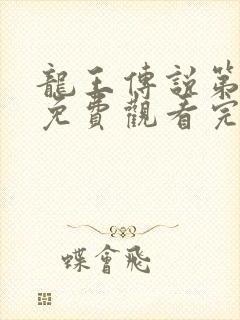 龍王傳說第
免費觀看完
蝶會飛